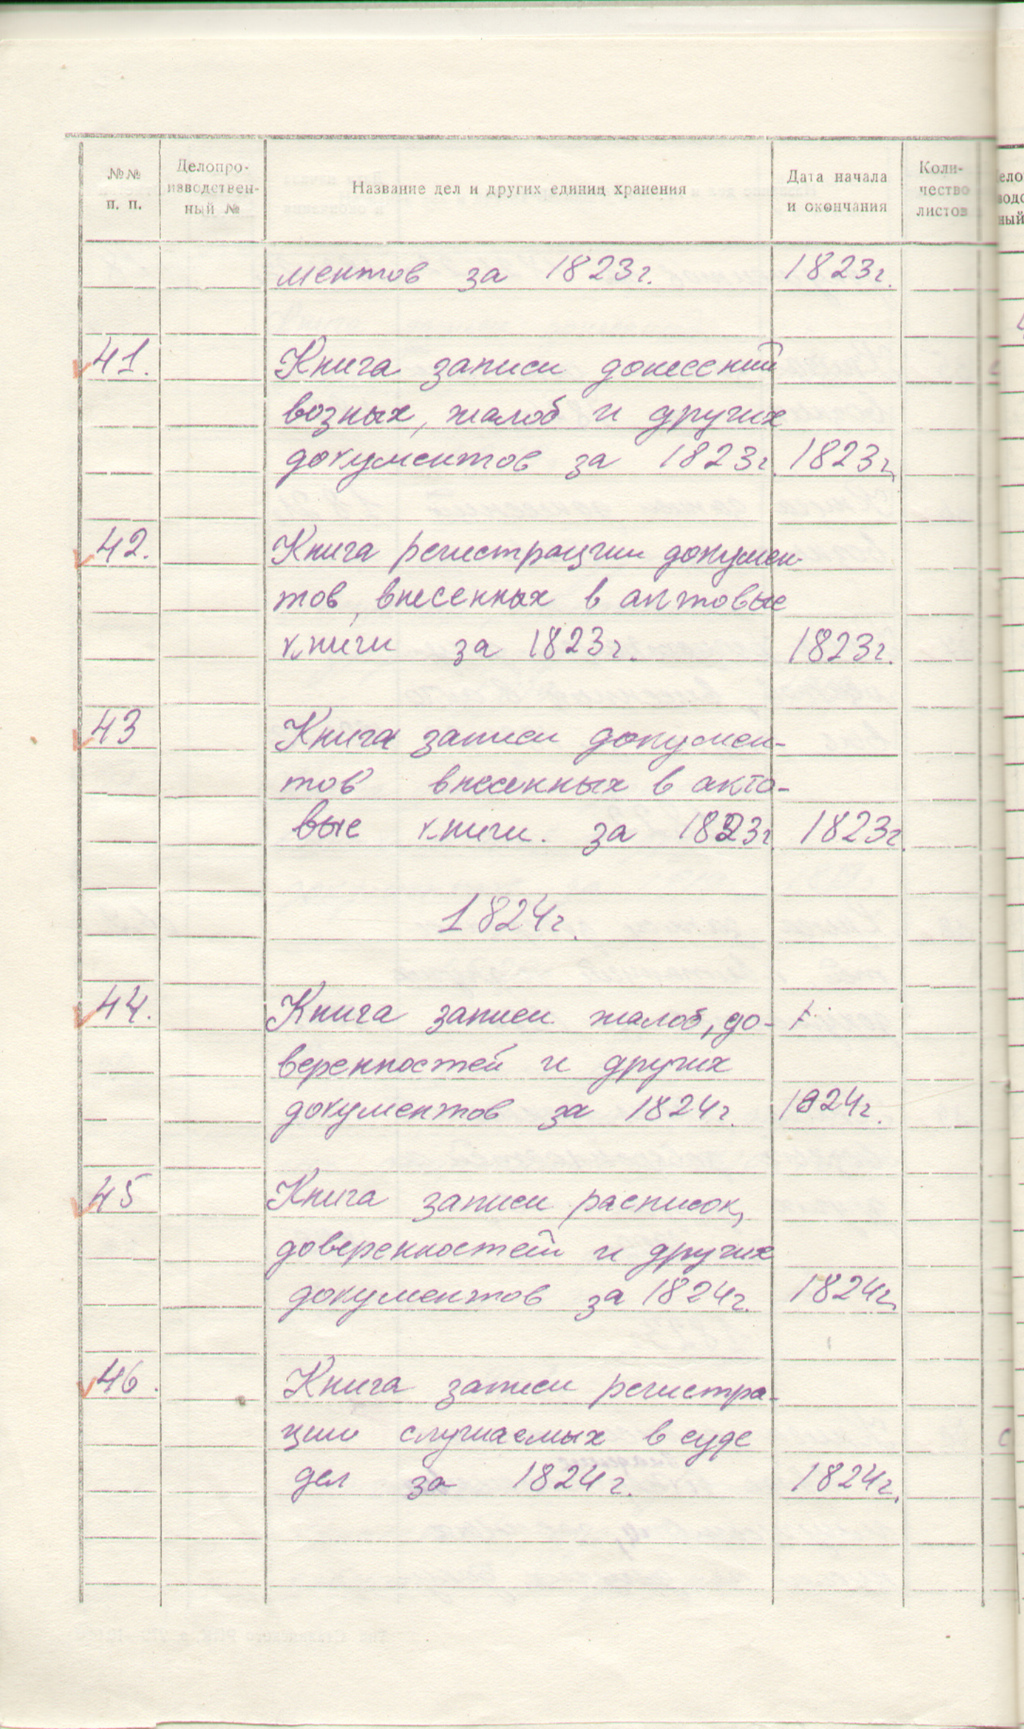 №№ п. п.
Делопро-
изводствен-
ный №
Название дел и других единиц хранения
Дата начала
и окончания
Коли-
чество
листов
ментов за 1823г. 1823г.
41. Книга записи донесений
возных, жалоб и других
документов за 1823г. 1823г.
42. Книга регистрации докумен-
тов, внесенных в актовые
книги за 1823г. 1823г.
43 Книга записи докумен-
тов внесенных в акто-
вые книги. за 1823г. 1823г.
1824г.
44. Книга записи жалоб, до-
веренностей и других
документов за 1824г. 1824г.
45 Книга записи расписок,
доверенностей и других
документов за 1824г. 1824г.
46. Книга записи регистра-
цию слушаемых в суде
дел за 1824г. 1824г.